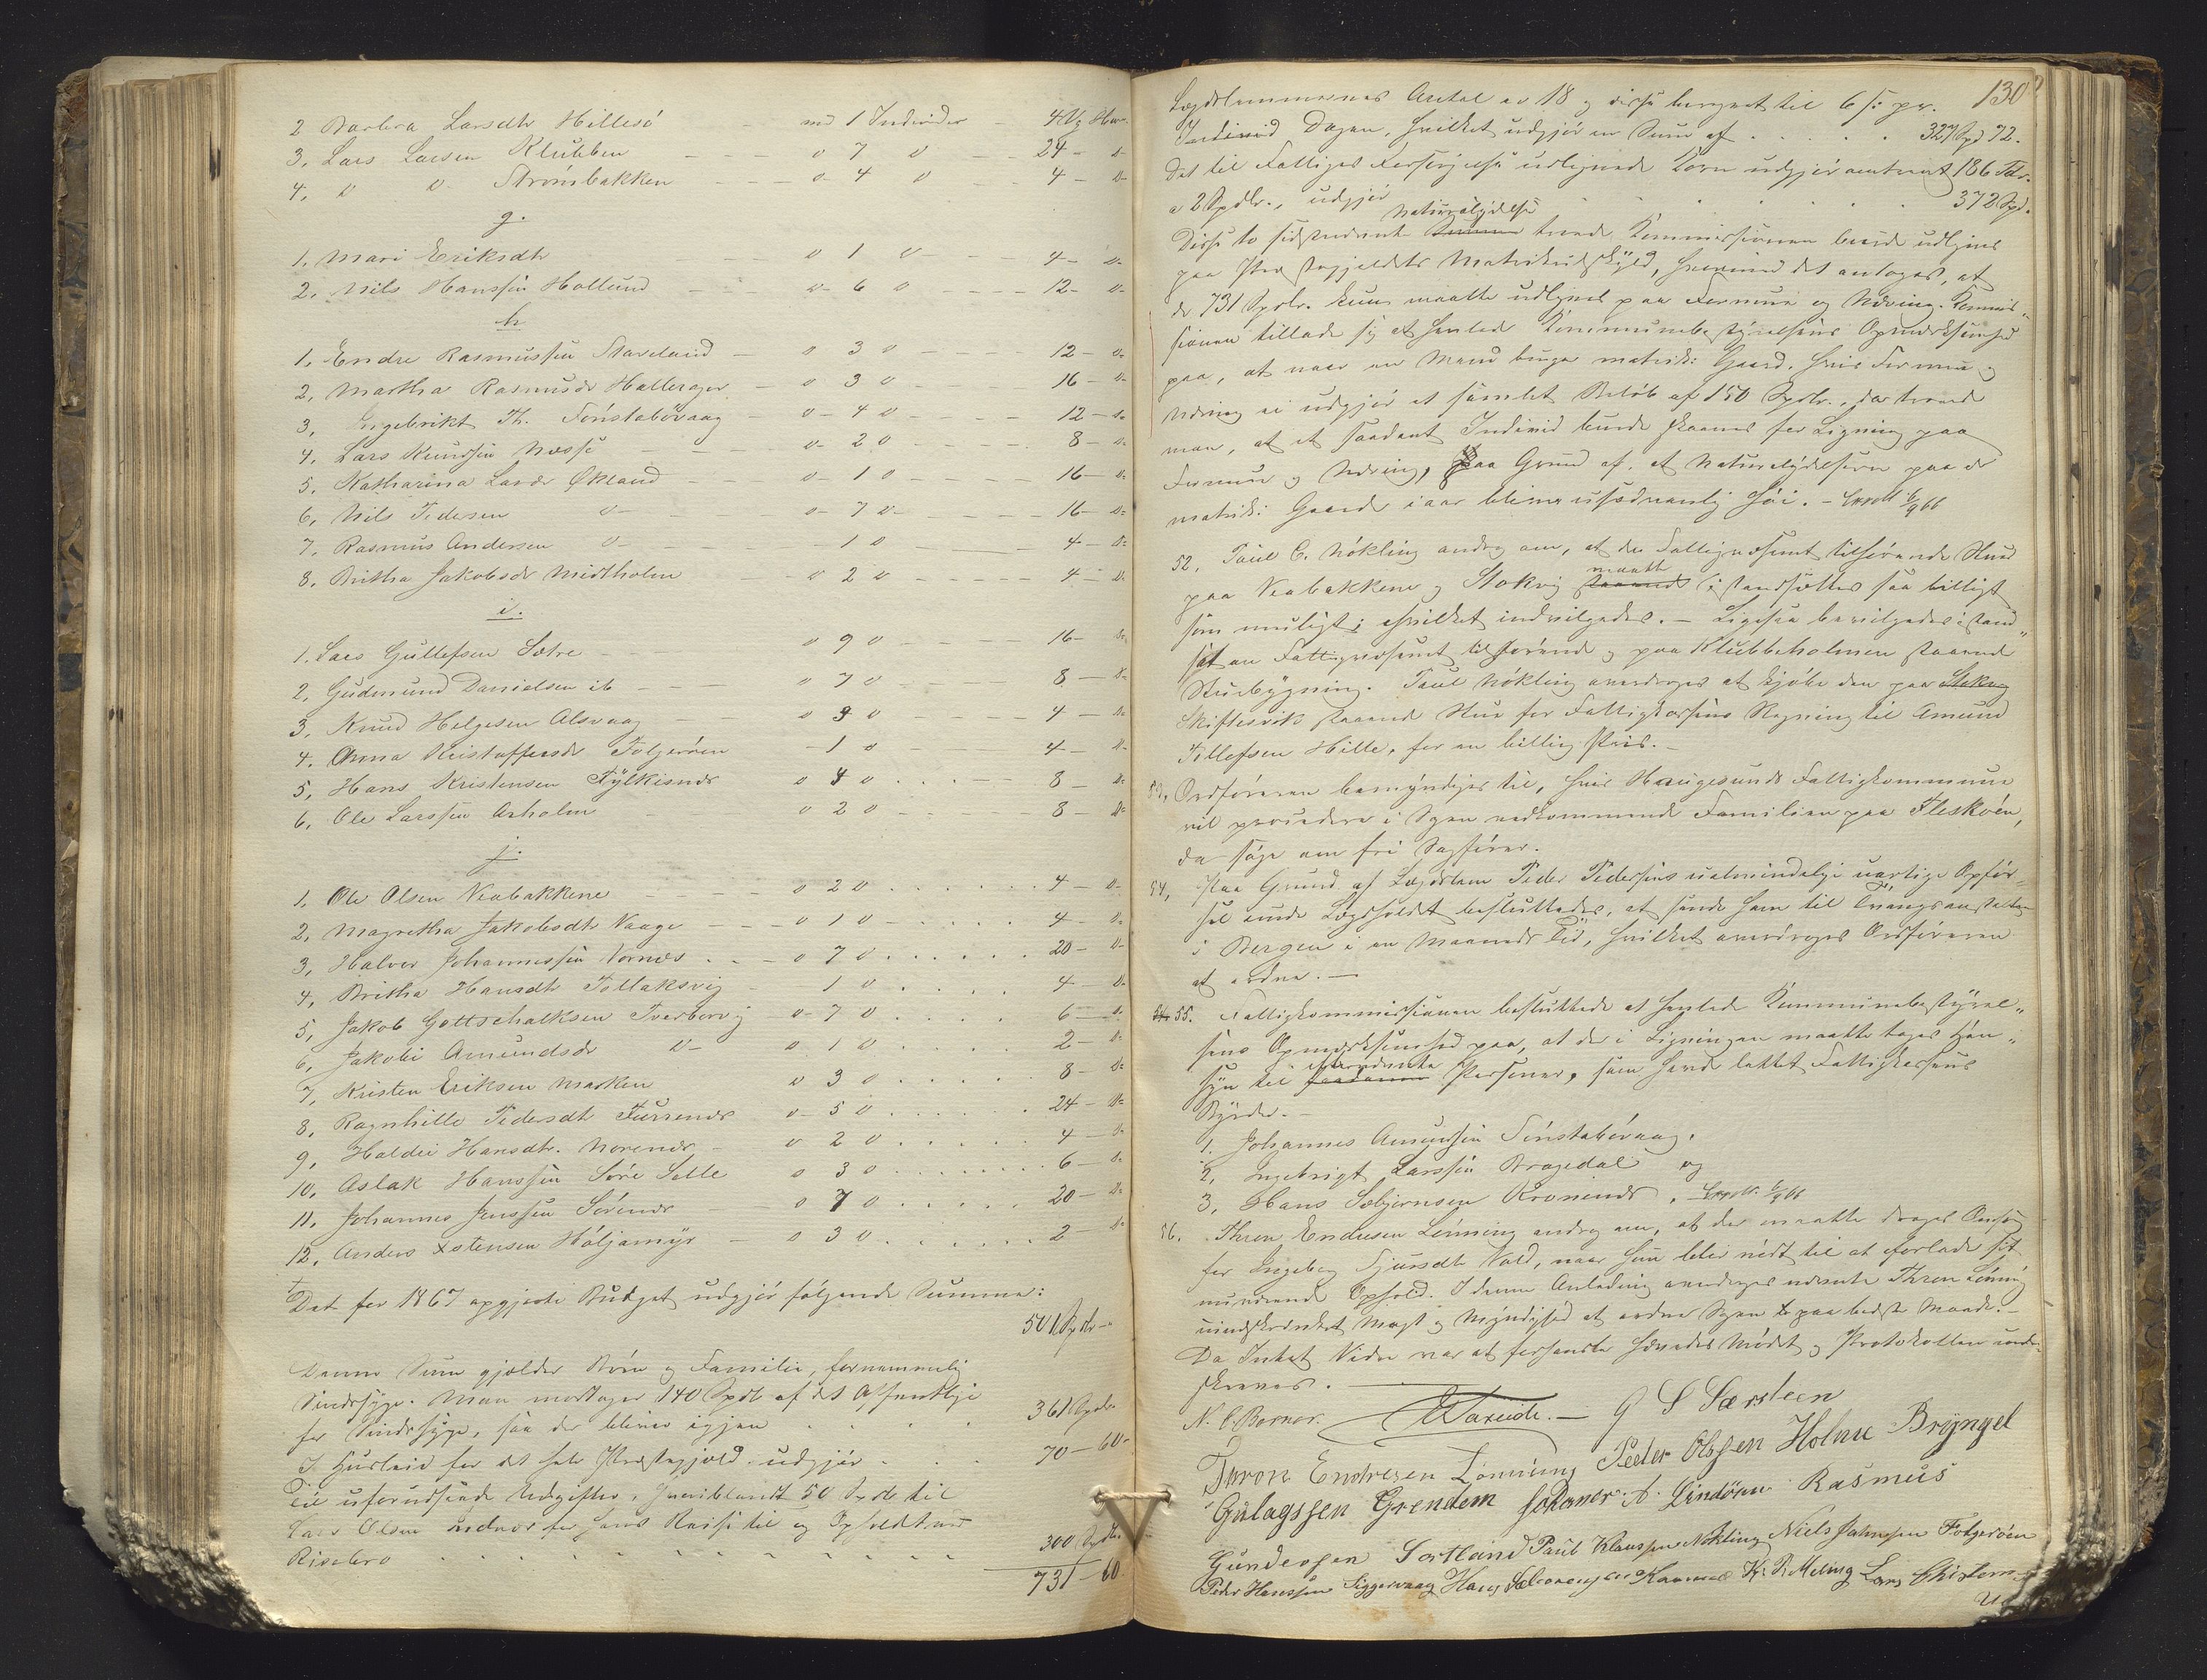 2 Barbra Larsdtr Hillesö - med 1 Individer - 4 Vg Havr.
3. Lars Larsen Klubben - - - - o 7 o - - 24 - o-
4. o o- Strömsbakken - - - o- 4 o - - 4 - o-
g.
1. Mari Eriksdtr - - - o 1 o - - 4 - o-
2. Nils Hanssön Hollund - - - o- 6 o - - - - 12 - o-
h
1. Endre Rasmussön Staveland - o 3 o - - - - 12 - o-
2. Martha Rasmusdr Hallerager - o 3 o - - - - 16 - o-
3. Ingebrikt Th. Fonstabövaag - o- 4 o - - - - 12 - o-
4. Lars Knudsön Næsse - - - o- 2 o - - - - 8 - o-
5. Katharina Larsdr Økland - - o- 1 o - - - - 16 - o-
6. Nils Pedersen o- - - - o- 7 o- - - - - 16 - o-
7. Rasmus Andersen o- - - - - 1 o - - - 4 - o-
8. Britha Jakobsdr Midtholm - o 2 o - - - - - 4 - o-
i.
1. Lars Gullefsen Sætre - - - o 9 o - - - - 16 - o-
2. Gudmund Danielsen ib - - - o 7 o - - - - 8 - o-
3. Knud Helgesen Alsvaag - - o 9 o - - - - 4 - o-
4. Anna Kristoffersdr Folgeröen - 1 o - - - - 4 - o-
5. Hans Kristensen Fylkisnæs o 4 o . . . - - 8 - o-
6. Ole Larssön Arholm - - o 2 o - - - - 8 - o-
j.
1. Ole Olsen Neabakkene - - - o 2 o . . . . . . 4 - o-
2. Magretha Jakobsdtr Vaage - - - o 1 o . . . . . 4 - o-
3. Halvor Johannessön Vornæs . . - o 7 o . . . . . . 20 - o-
4. Britha Hansdtr Tollaksvig - 1 o . . . . 4 - o-
5. Jakob Gottschalksen Tverborvig - o- 7 o . . . . 6 - o-
6. Jakobi Amundsdr o- o 1 o . . . . . 2 - o-
7. Kristen Eriksen Marken o 3 o . . . . . 8 - o-
8. Ragnhilde Pedersdtr Furrenæs o- 5 o . . . . . . 24 - o-
9. Haldei Hansdtr. Norenæs - o 2 o . . . . . 4 - o-
10. Aslak Hanssön Söre Selle o 3 o . . . . . . . 6 - o-
11. Johannes Jenssön Sörenæs - o 7 o . . . . . 20 - o-
12. Anders Xstensen Höljamyr - o 3 o . . . . . . . 2 - o-
Det for 1867 opgjorte Budget udgjör følgende Summa:
501 Spdlr -
Denne Sum gjælder Börn og Familie, fornemmelig
Sindssyge. Man modtager 140 Spdlr af det Offentlige
for Sindssyge, saa der bliver igjen . . . . 361 Spdlr
I Husleie for det hele Præstegjeld udgjör . . . 70 - 60 -
Til uforudseede Udgifter, hvoriblandt 50 Spdlr til
Lars Olsen Indvær for hans Reise til og Ophold ved
Risebro . . . . . . . . . . . 300 Spdlr.
731 - 60
130
Lægdslemmernes Antal er 18 og disse beregnet til 6 s: pr.
Individ Dagen, hvilket udgjör en Sum af . . . . . 327 Spd 72.
Det til Fattiges Forsörgelse udlignede Korn udgjör omtrent 186 Tdr.
a 2 Spdlr., udgjör . . . . . . . 372 Spd.
Naturalydelse
Disse to sidstnævnte Summer troede Kommissionen burde udlignes
paa Præstegjeldets Matrikulskyld, hvorimod det antoges, at
de 731 Spdlr. kun maatte udlignes paa Formue og Næring. Kommis„
sionen tillader sig at henlede Kommunebestyrelsens Opmærksomhed
paa, at naar en Mand bruger matrik: Gaard, hvis Formue og
Næring ei udgjör et samlet Belöb af 150 Spdlr., da troede
man, at et saadant Individ burde skaanes for Ligning paa
Formue og Næring, paa Grund af, at Naturalydelserne paa de
matrik: Gaarde iaar bliver usædvanlig höi. -
52. Paul C. Nökling androg om, at den Fattigvæsenet tilhørende Stue
maatte
paa Neabakkene og Stokvig istandsættes saa billigt
som muligt; hvilket indvilgedes. - Ligesaa bevilgedes istand„
sat en Fattigvæsenet tilhørende og paa Klubbeholmen staaende
Stuebygning. Paul Nökling overdroges at kjöbe den paa Stokvig
Skiftesvik staaende Stue for Fattigkassens Regning til Amund
Tillefsen Hille, for en billig Pris. -
53. Ordföreren bemyndiges til, hvis Haugesunds Fattigkommission
vil procedere i Sagen vedkommende Familien paa Fleskøen,
da söge om fri Sagförer.
54. Paa Grund af Lægdslem Peder Pedersens ualmindelige uartige Opför„
sel under Lægdholdet besluttedes, at sende ham til Tvangsanstalten
i Bergen i en Maaneds Tid, hvilket overdroges Ordföreren
at ordne. -
55. Fattigkommissionen besluttede at henlede Kommunebestyrel„
sens Opmærksomhed paa, at der i Ligningen maatte tages Hen„
efternævnte
syn til saadanne Personer, som havde lettet Fattigkassens
Byrder. -
1. Johannes Amundsön Fonstabövaag,
2. Ingebrigt Larssön Bragedal og
3. Hans Sæbjørnsen Kronenæs.
56. Thron Endresen Lönning androg om, at der maatte drages Omsorg
for Ingeborg Sjursdtr Vold, naar hun blev nödt til at forlade sit
nuværende Ophold. I denne Anledning overdroges nævnte Thron Lönning
uindskrænket Magt og Myndighed at ordne Sagen paa bedste Maade. -
Da Intet Videre var at forhandle hævedes Mödet og Protokollen under„
skreves.
N. C. Bernar. Vareide. - G S Færsteen
Thron Endresen Lönning Peder Olssen Holme Bryngel
Gulagssen Grendem Johanes A. Lindöen Rasmus
Gundersen Sortland Paul Klaussen Nökling Niels Johnssen Folgeröen
Peder Hanssen Siggervaag Hans Sæbiornsen Kr. P. Meling Lars Chistens